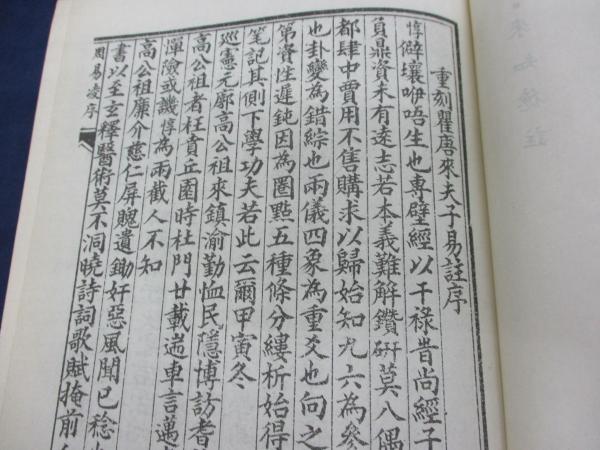 重刻瞿唐來夫子易註序
惇僻壤咿唔生也專壁經以干祿昔尚經子
負鼎資未有遠志若本義難解鑽研莫入偶
都肆中賈用不售購求以歸始知九六為參
也卦變為錯綜也兩儀四象為重爻也向之
第資性遲鈍因為圈點五種條分縷析始得
筆記其側下學功夫若此云爾甲寅冬
巡憲元廓高公祖來鎮渝勤恤民隱博訪耆
高公祖者枉賁丘園時杜門廿載耑車言邁
渾險或譏惇為兩截人不知
高公祖廉介慈仁屏餽遺鋤奸惡風聞已稔
書以至玄釋醫術莫不洞曉詩詞歌賦掩前
周易凌序
來知德註